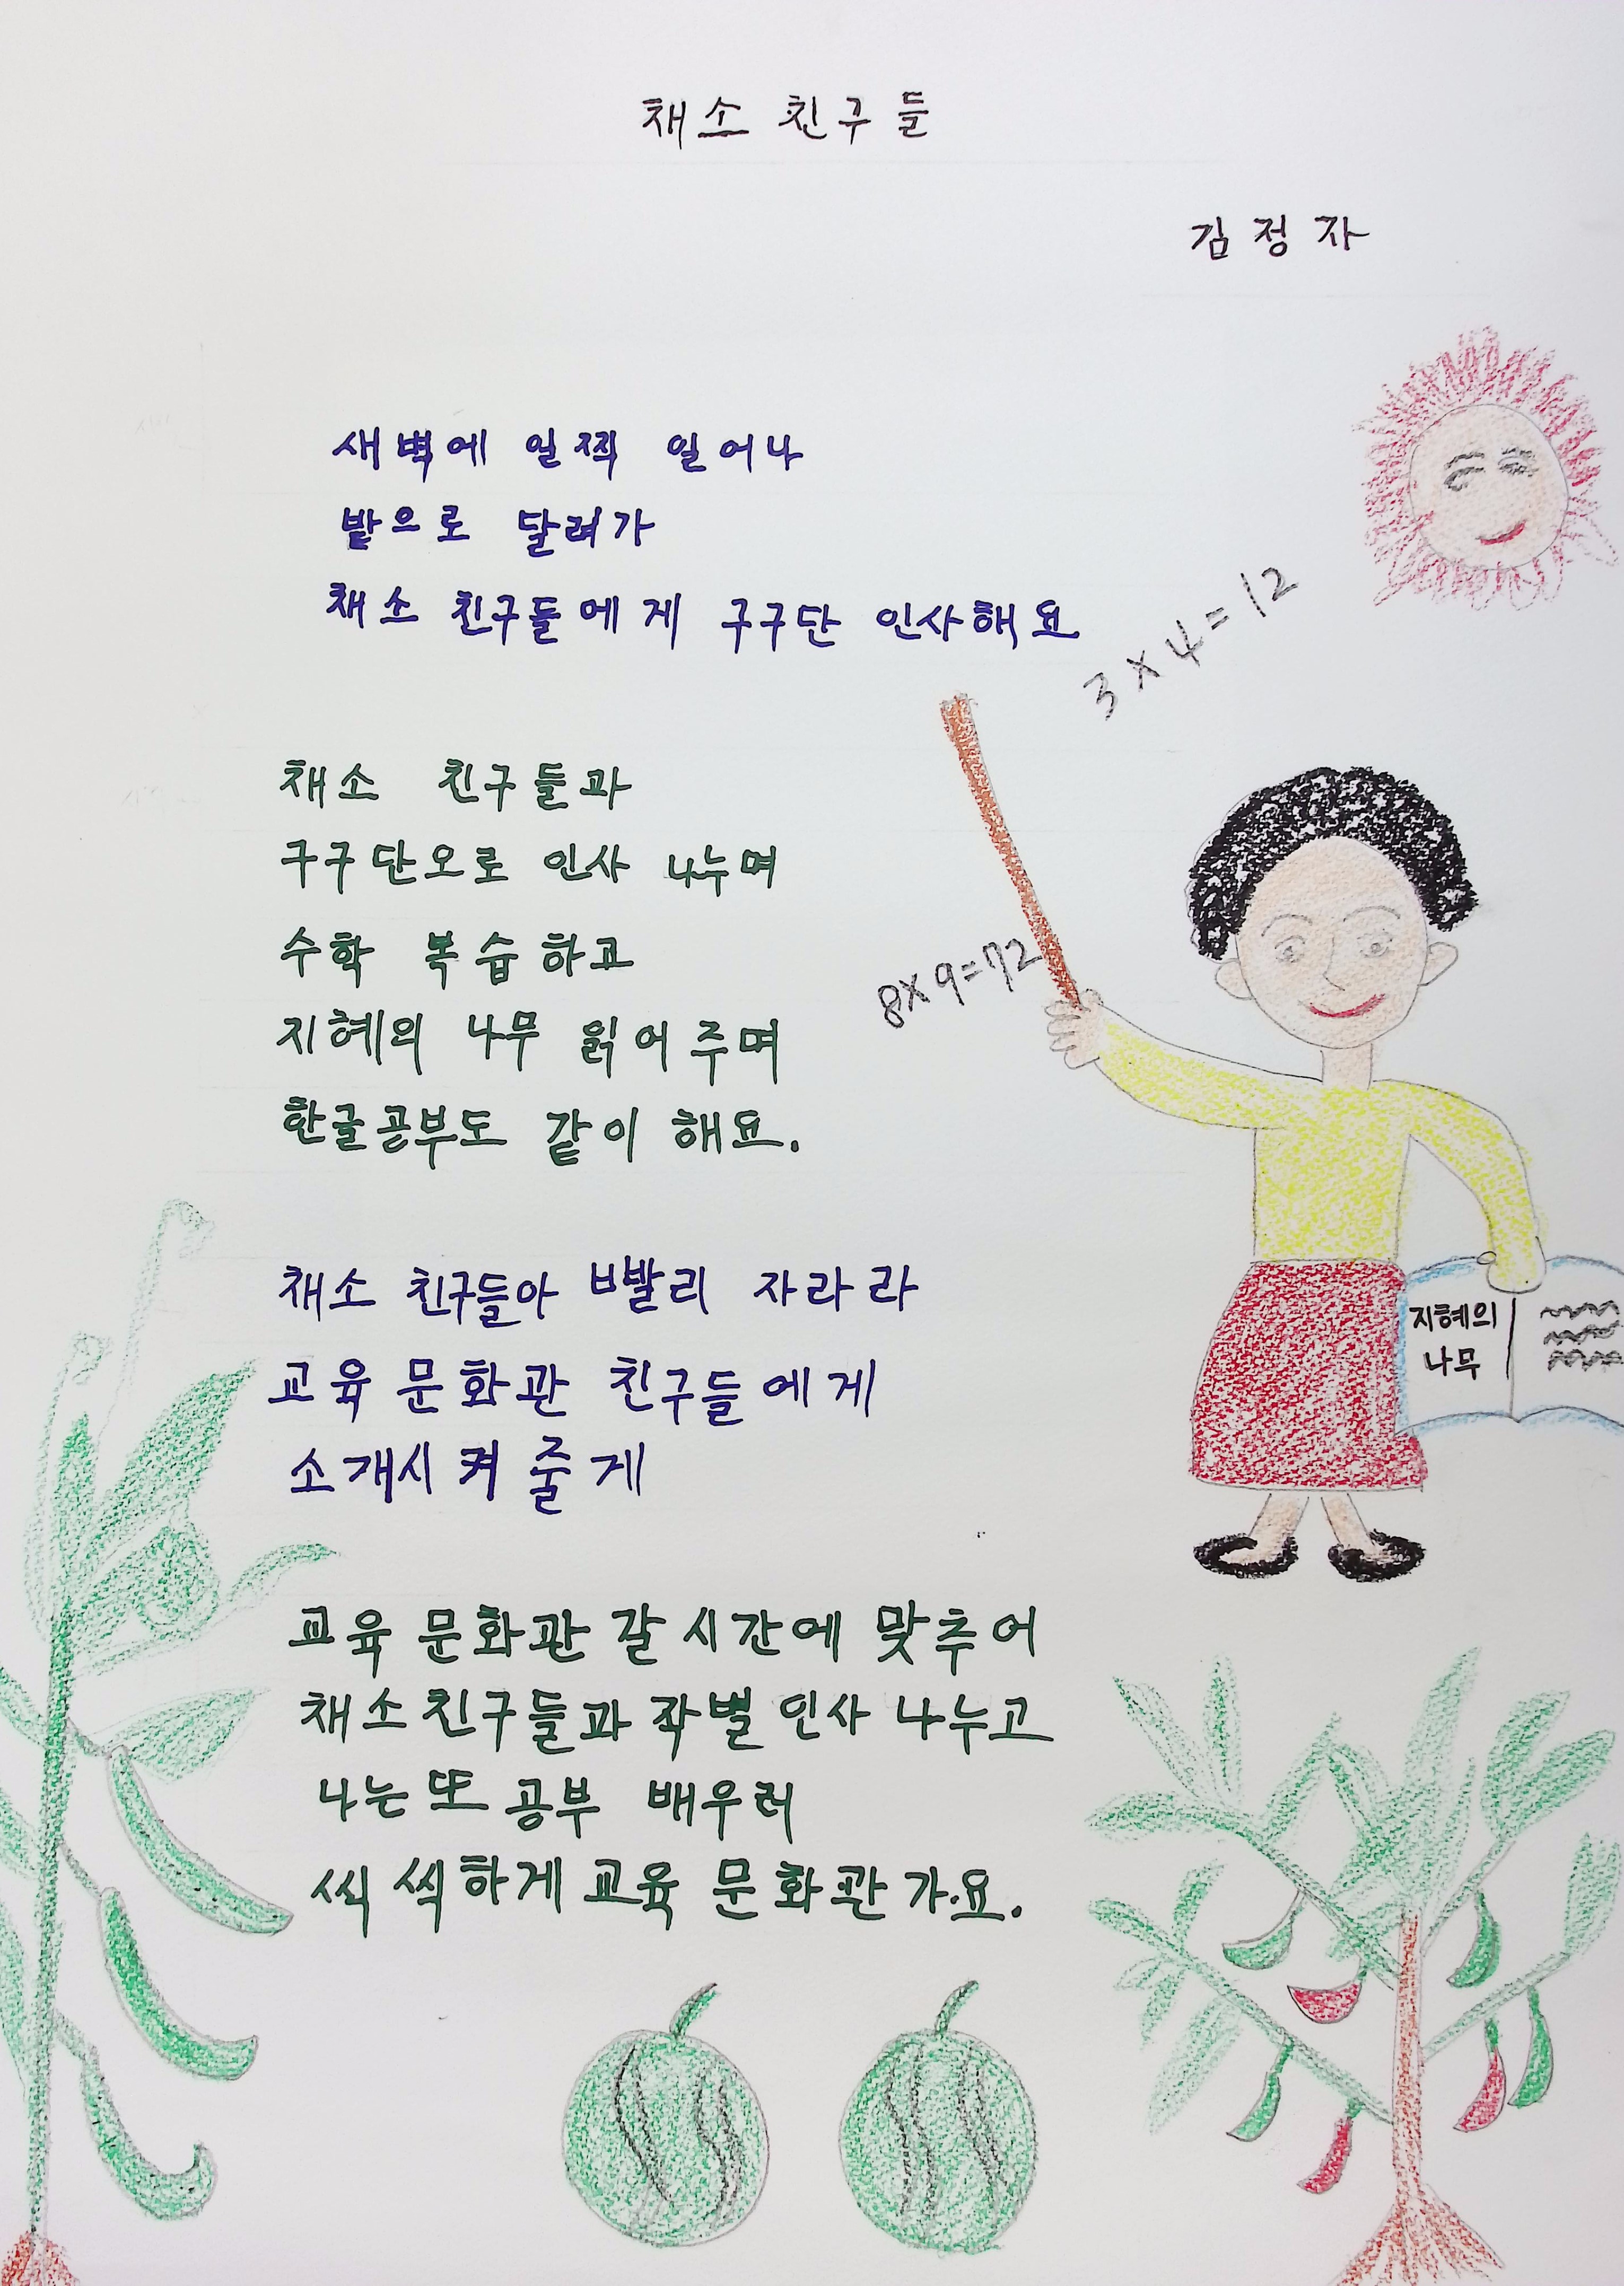 채소 친구들
김정자
새벽에 일찍 일어나
밭으로 달려가
채소 친구들에게 구구단 인사해요
3×4=12
채소 친구들과
구구단으로 인사 나누며
수학 복습하고
8×9=72
지혜의 나무 읽어 주며
한글공부도 같이 해요.
채소 친구들아 빨리 자라라
지혜의
나무
교육 문화관 친구들에게
소개시켜 줄게
교육 문화관 갈 시간에 맞추어
채소 친구들과 작별 인사 나누고
나는 또 공부 배우러
씩 씩하게 교육 문화관 가요.